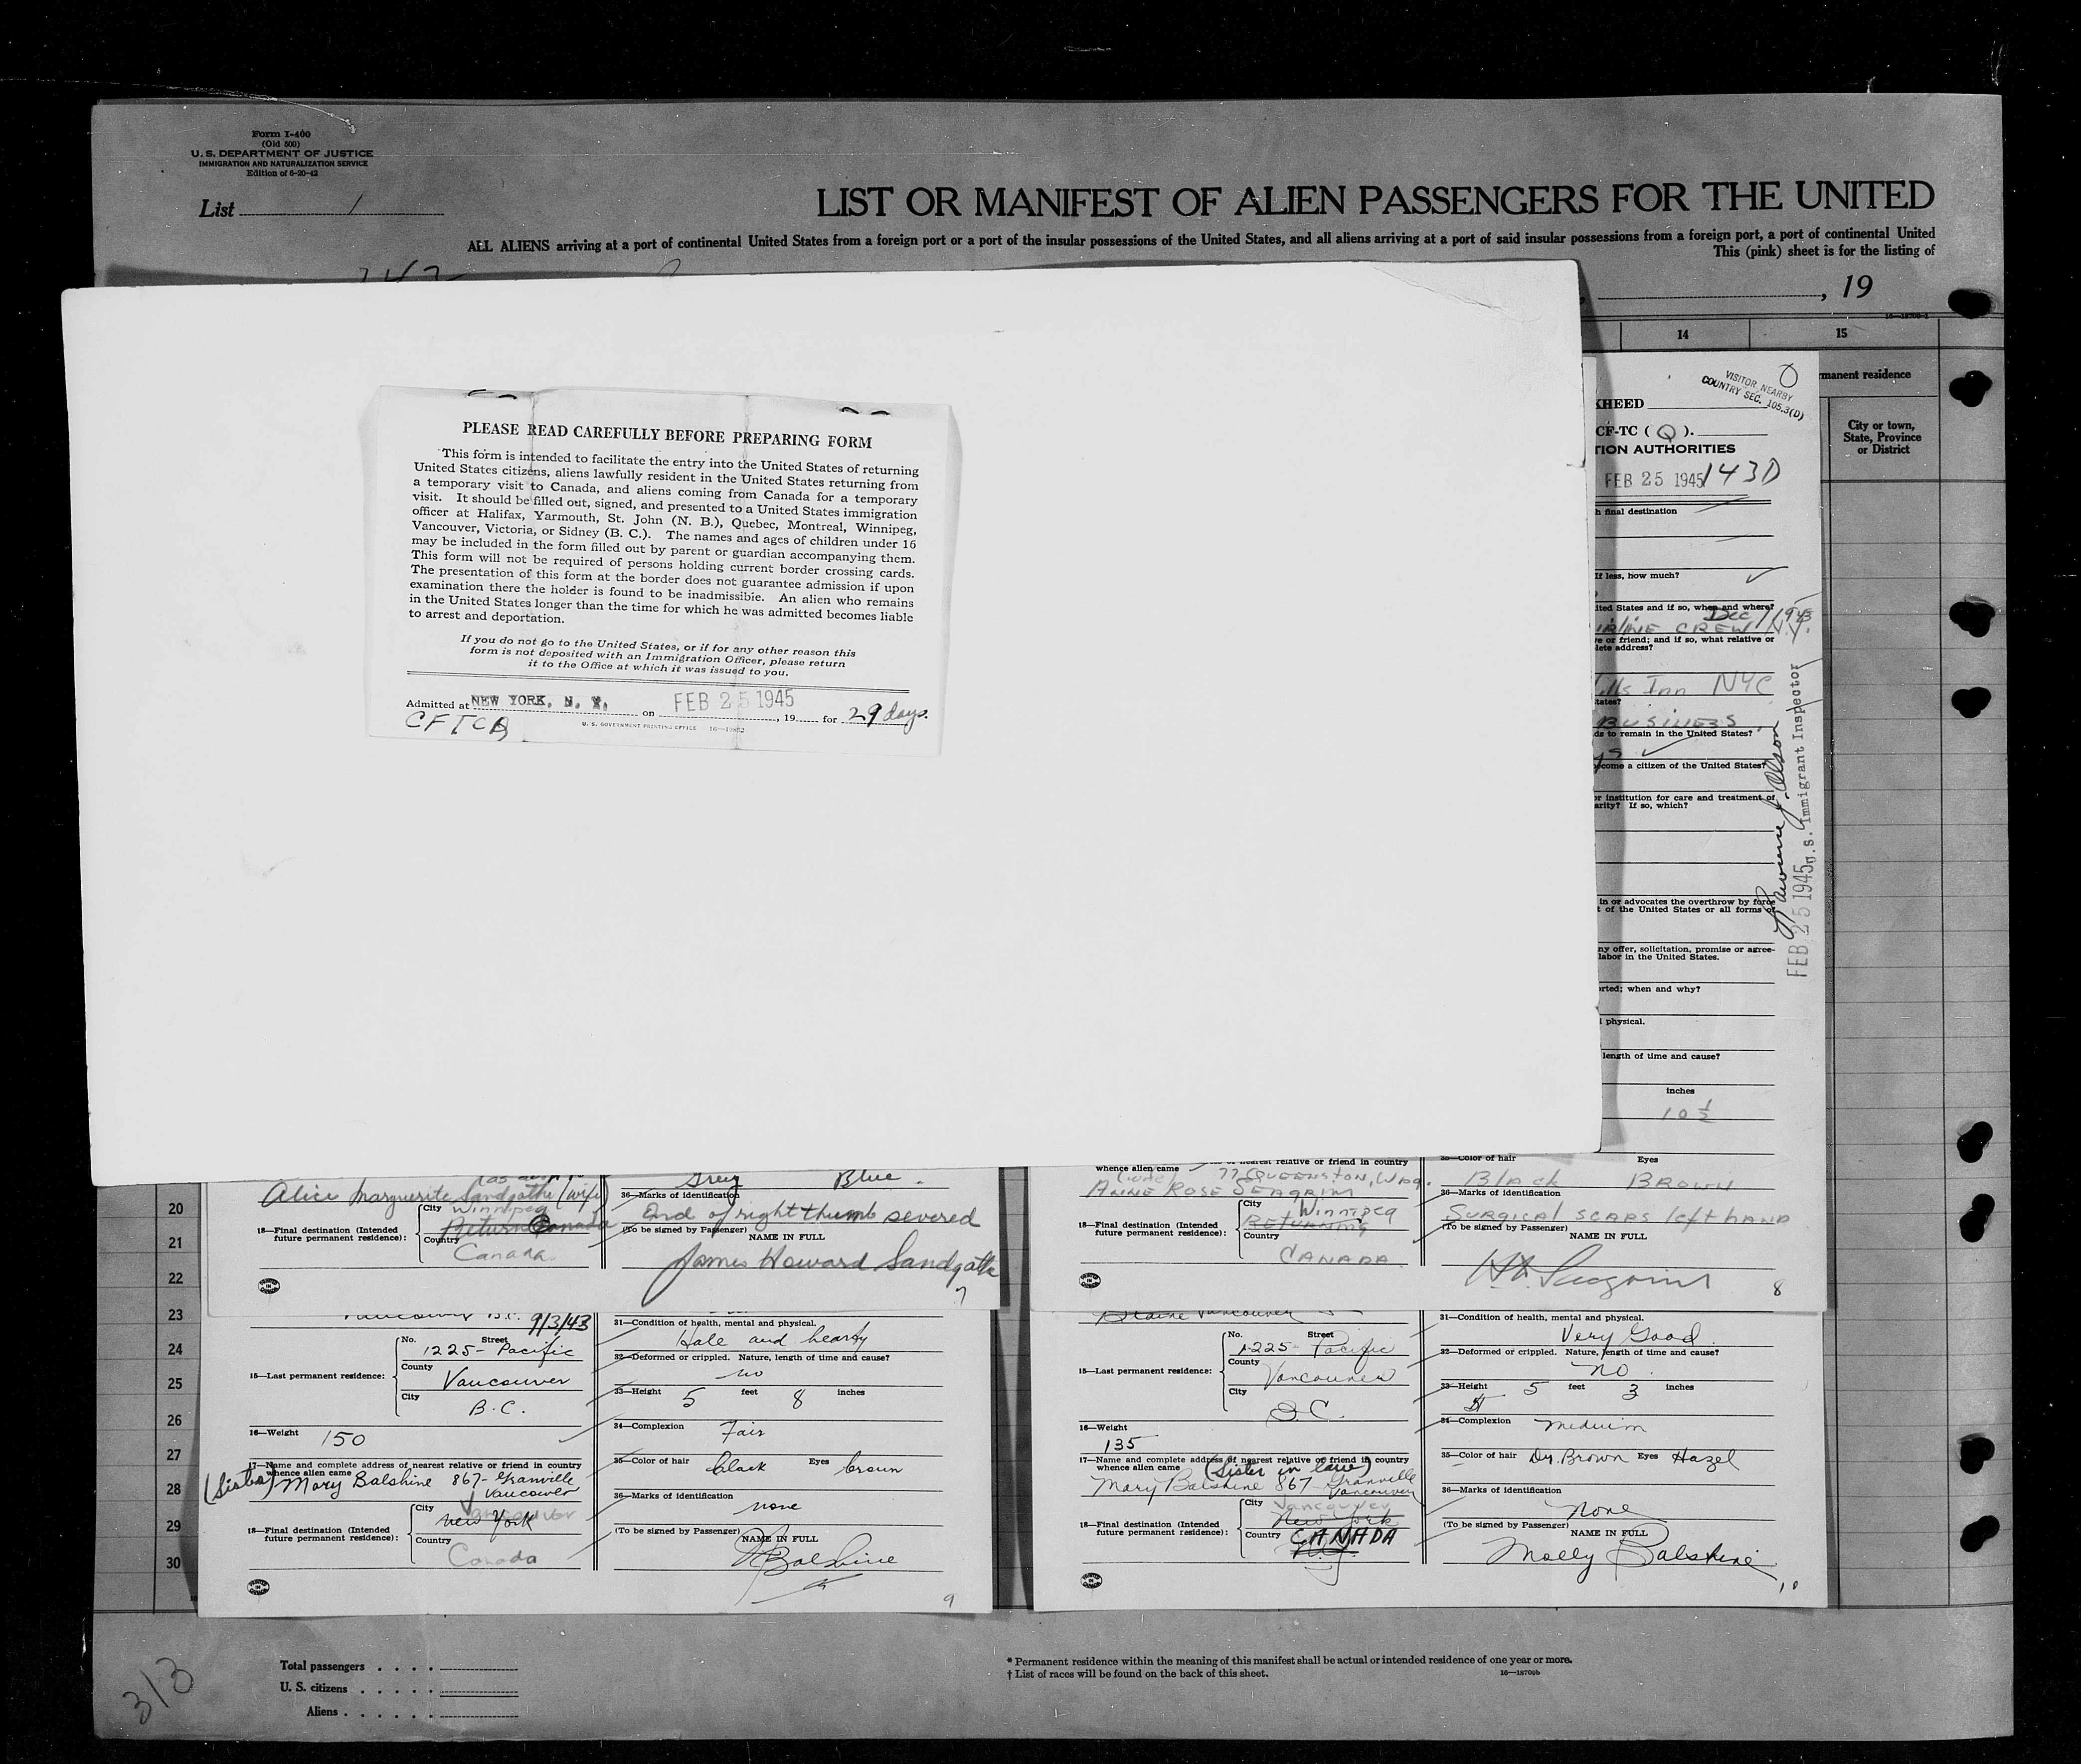 Form I-400
(Old 500)
U. S. DEPARTMENT OF JUSTICE
IMMIGRATION AND NATURALIZATION SERVICE
Edition of 6-20-42
List 1
LIST OR MANIFEST OF ALIEN PASSENGERS FOR THE UNITED
ALL ALIENS arriving at a port of continental United States from a foreign port or a port of the insular possessions of the United States, and all aliens arriving at a port of said insular possessions from a foreign port, a port of continental United
This (pink) sheet is for the listing of
, 19
14 15
manent residence
City or town,
State, Province
or District
PLEASE READ CAREFULLY BEFORE PREPARING FORM
This form is intended to facilitate the entry into the United States of returning
United States citizens, aliens lawfully resident in the United States returning from
a temporary visit to Canada, and aliens coming from Canada for a temporary
visit. It should be filled out, signed, and presented to a United States immigration
officer at Halifax, Yarmouth, St. John (N. B.), Quebec, Montreal, Winnipeg,
Vancouver, Victoria, or Sidney (B. C.). The names and ages of children under 16
may be included in the form filled out by parent or guardian accompanying them.
This form will not be required of persons holding current border crossing cards.
The presentation of this form at the border does not guarantee admission if upon
examination there the holder is found to be inadmissible. An alien who remains
in the United States longer than the time for which he was admitted becomes liable
to arrest and deportation.
If you do not go to the United States, or if for any other reason this
form is not deposited with an Immigration Officer, please return
it to the Office at which it was issued to you.
Admitted at NEW YORK, N. Y. on FEB 25 1945, 19 for 29 days.
U. S. GOVERNMENT PRINTING OFFICE
VISITOR, NEARBY
COUNTRY SEC. 105.3(D)
KHEED
CF-TC ( Q ).
TION AUTHORITIES
FEB 25 1945 143D
h final destination
If less, how much?
ited States and if so, when and where?
Dec 1943
CREW N.Y.
e or friend; and if so, what relative or
lete address?
lls Inn NYC
tates?
BUSINESS
ds to remain in the United States?
come a citizen of the United States?
or institution for care and treatment of
arity? If so, which?
in or advocates the overthrow by force
t of the United States or all forms of
ny offer, solicitation, promise or agree-
labor in the United States.
rted; when and why?
l physical.
length of time and cause?
inches
10 ½
FEB 25 1945 U.S. Immigrant Inspector
20
21
22
23
24
25
26
27
28
29
30
Grey Blue.
Alice Marguerite Sandgathe (wife)
36—Marks of identification
End of right thumb severed
18—Final destination (Intended
future permanent residence):
City Winnipeg
Return Canada
Country
Canada
(To be signed by Passenger)
NAME IN FULL
James Howard Sandgathe
7
nearest relative or friend in country
whence alien came
77 QUEENSTON, WPG.
ANNE ROSE SEAGRIM
18—Final destination (Intended
future permanent residence):
City Winnipeg
RETURNING
Country
CANADA
35—Color of hair Eyes
Black BROWN
36—Marks of identification
SURGICAL SCARS left HAND
(To be signed by Passenger)
NAME IN FULL
8
Vancouver B.C. 9/3/43
15—Last permanent residence:
No. Street
1225- Pacific
County
Vancouver
City
B.C.
16—Weight 150
17—Name and complete address of nearest relative or friend in country
whence alien came
(Sister) Mary Balshine 867- Granville
Vancouver
18—Final destination (Intended
future permanent residence):
City Vancouver
New York
Country
Canada
31—Condition of health, mental and physical.
Hale and hearty
32—Deformed or crippled. Nature, length of time and cause?
no
33—Height 5 feet 8 inches
34—Complexion Fair
35—Color of hair black Eyes brown
36—Marks of identification
none
(To be signed by Passenger)
NAME IN FULL
Balshine
9
Blaine Vancouver
15—Last permanent residence:
No. Street
1225- Pacific
County
Vancouver
City
B.C.
16—Weight
135
17—Name and complete address of nearest relative or friend in country
whence alien came (Sister in law)
Mary Balshine 867- Granville
Vancouver
18—Final destination (Intended
future permanent residence):
City Vancouver
New York
Country CANADA
31—Condition of health, mental and physical.
Very Good
32—Deformed or crippled. Nature, length of time and cause?
no
33—Height 5 feet 3 inches
34—Complexion medium
35—Color of hair Dr. Brown Eyes Hazel
36—Marks of identification
None
(To be signed by Passenger)
NAME IN FULL
Molly Balshine
10
313
Total passengers
U. S. citizens
Aliens
* Permanent residence within the meaning of this manifest shall be actual or intended residence of one year or more.
† List of races will be found on the back of this sheet.
16—18709b